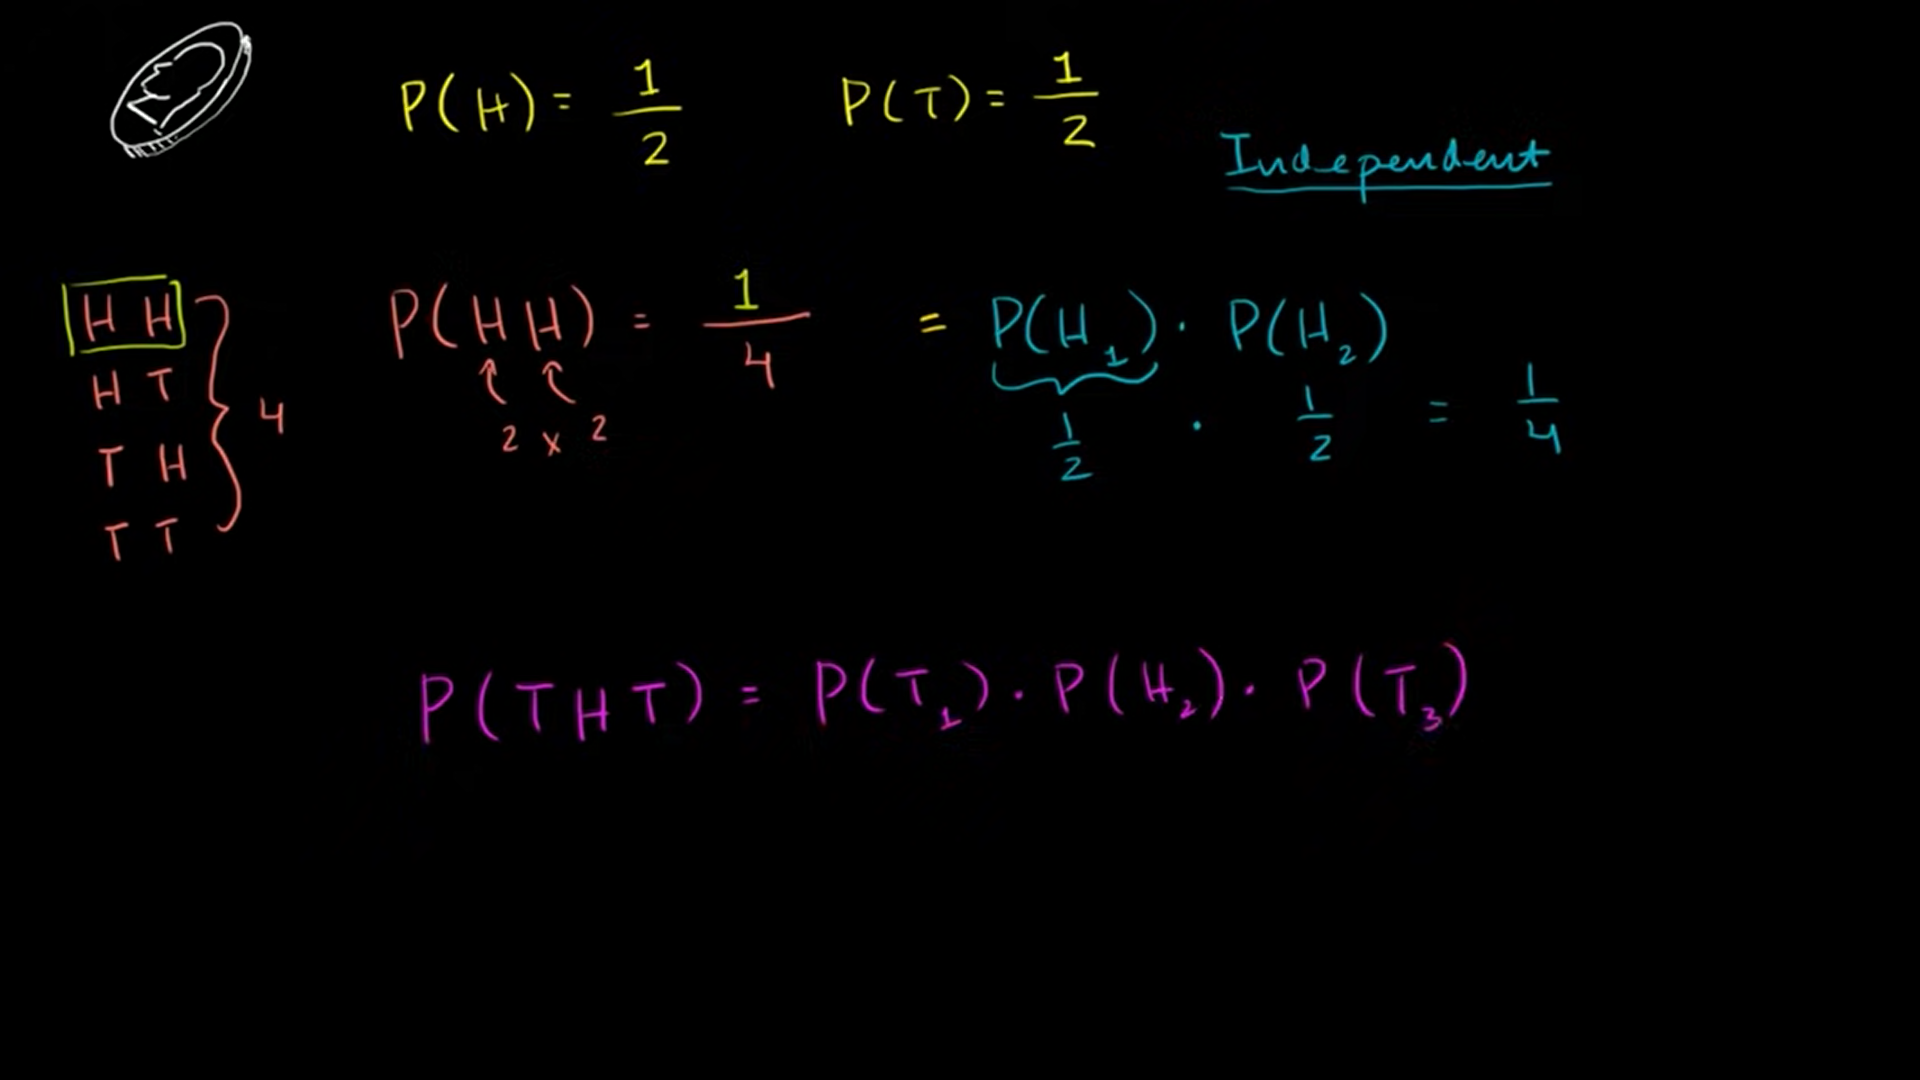 P(H) = 1/2 P(T) = 1/2
Independent
H H
H T
T H
T T
4
P(HH) = 1/4 = P(H₁) · P(H₂)
2 x 2
1/2 · 1/2 = 1/4
P(THT) = P(T₁) · P(H₂) · P(T₃)